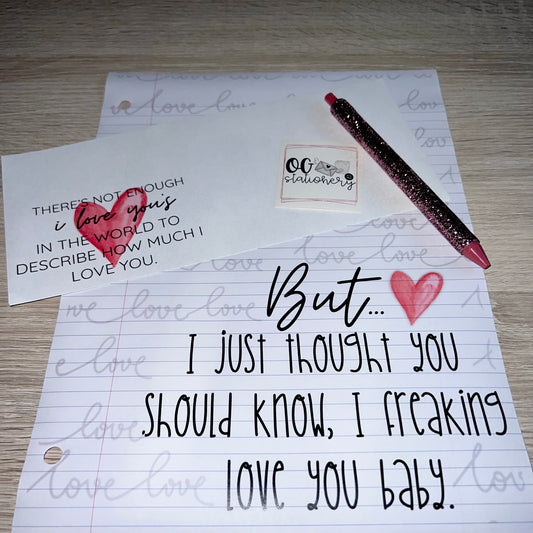 love love love
love
THERE'S NOT ENOUGH
i love you's
IN THE WORLD TO
DESCRIBE HOW MUCH I
LOVE YOU.
OG
stationery
love love love
But...
I just thought you
should know, I freaking
love you baby.
love
love
love love
love